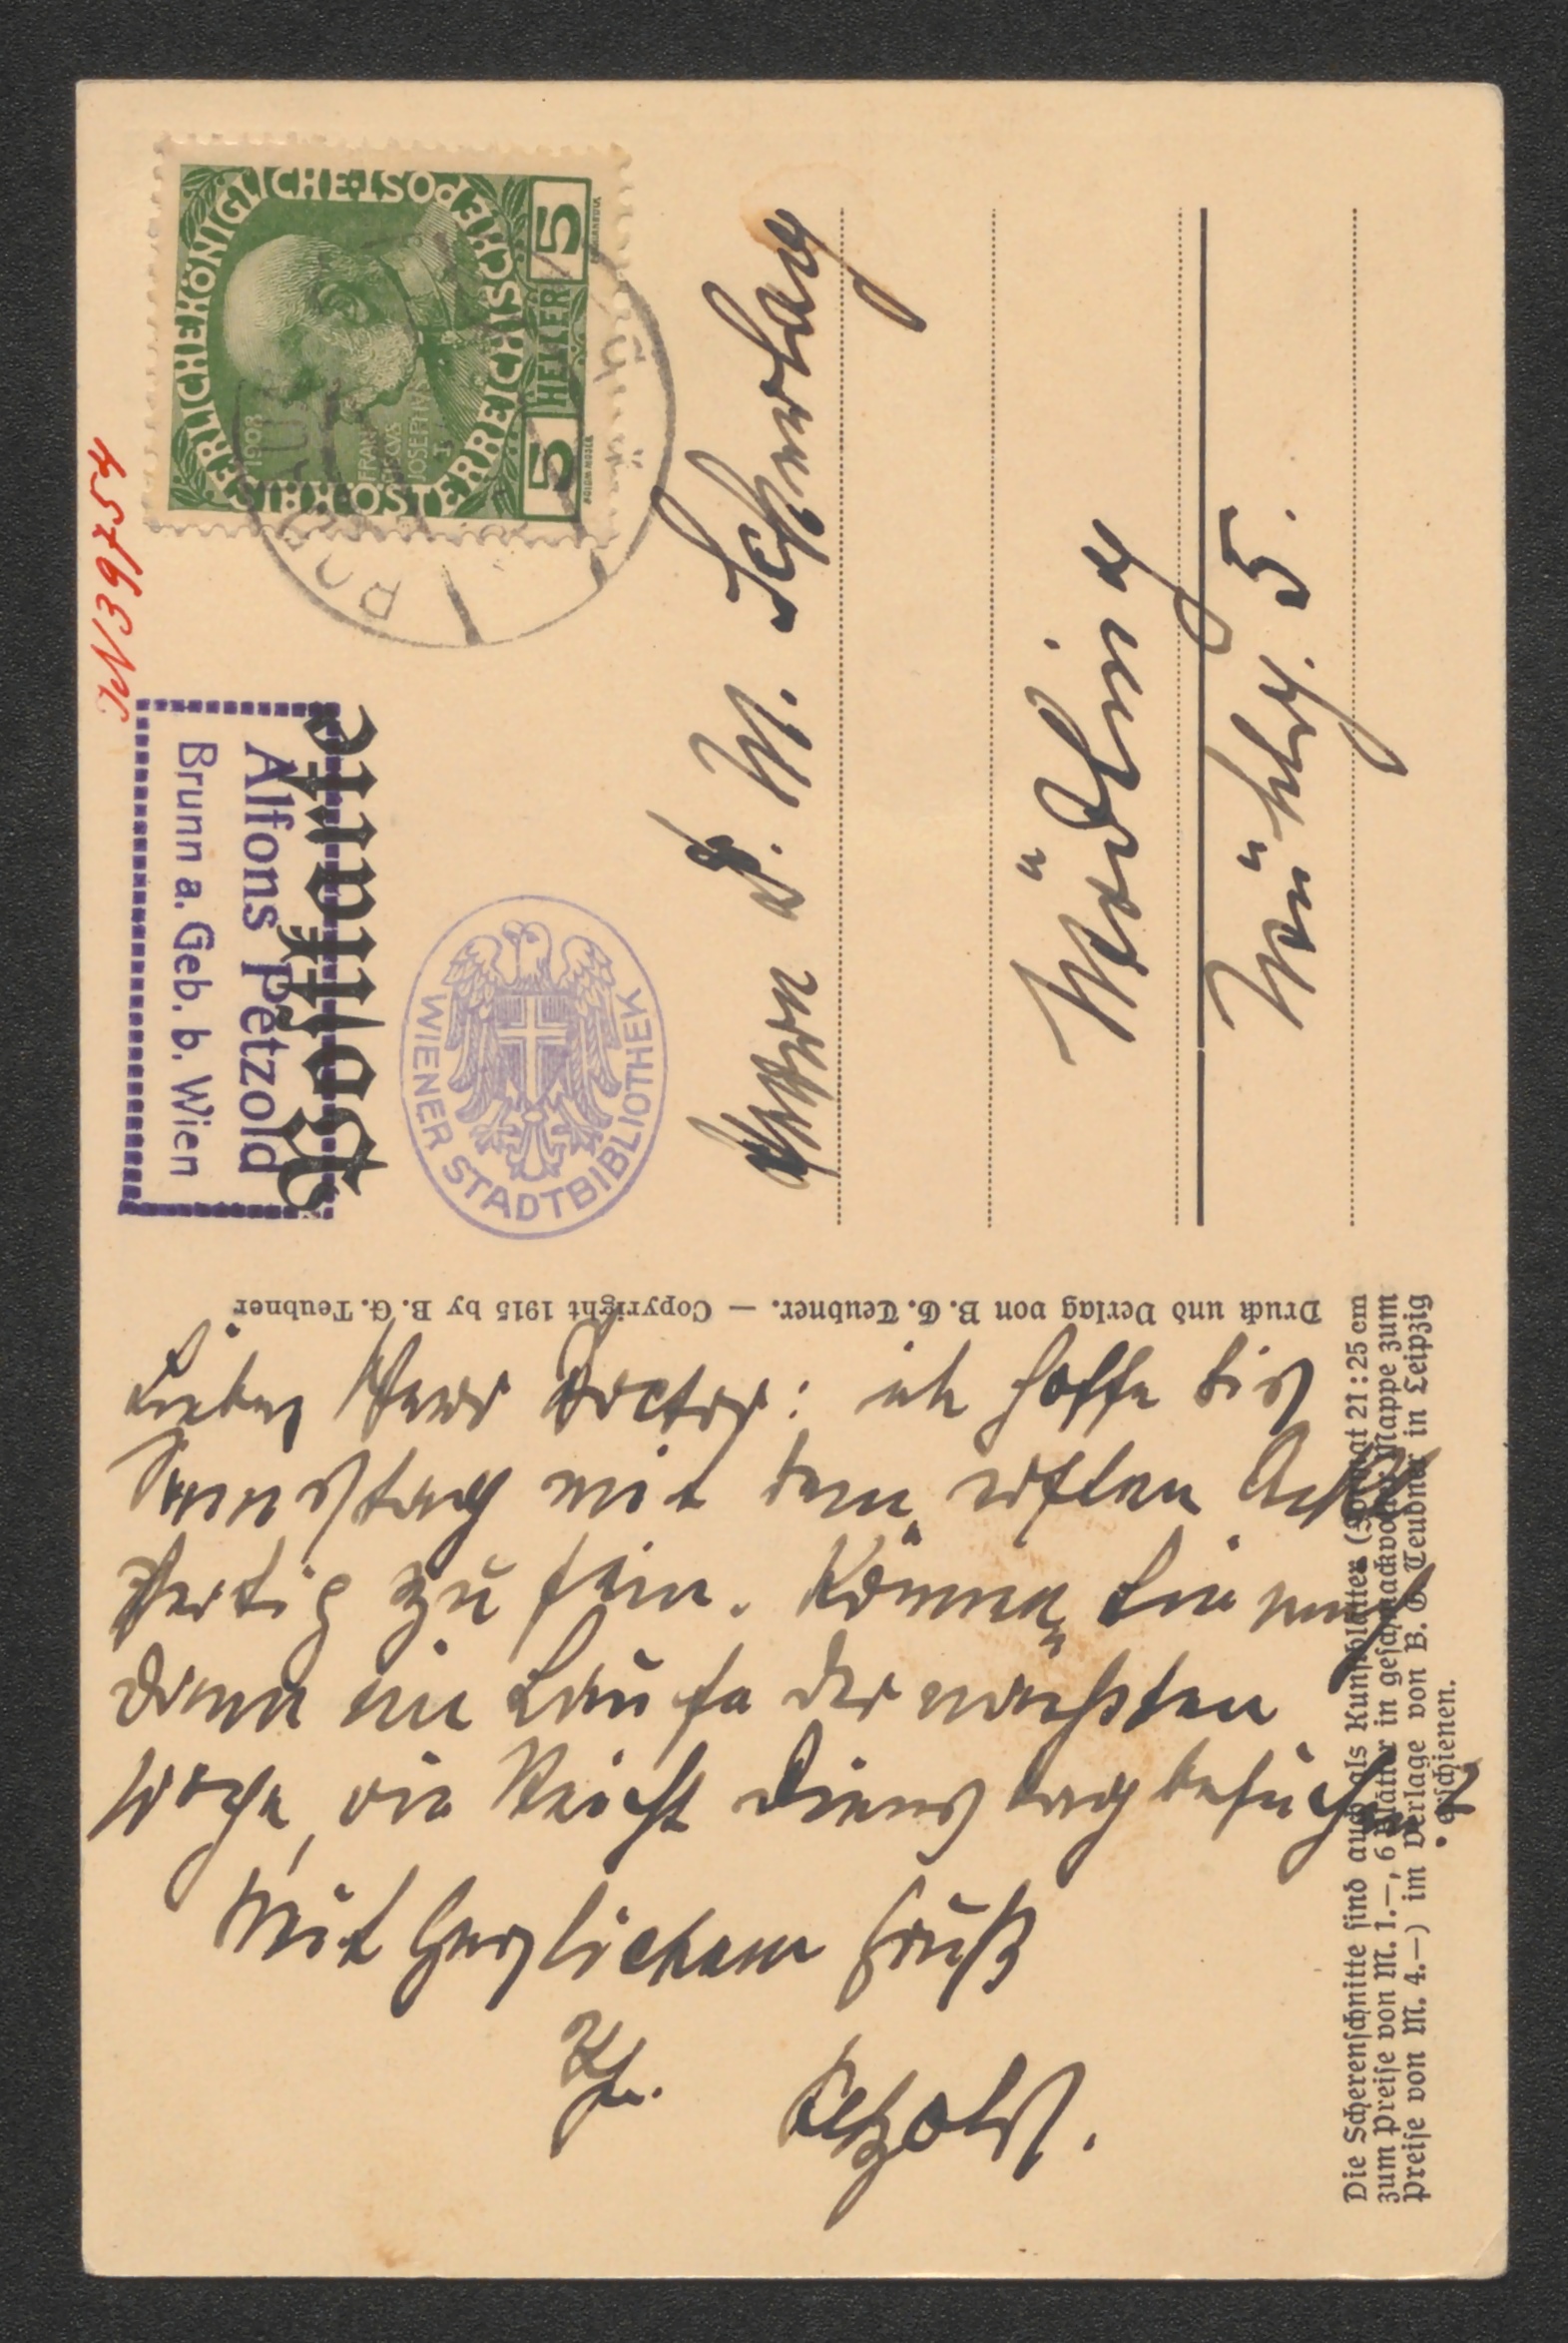 IN 39754
Postkarte
Alfons Petzold
Brunn a. Geb. b. Wien
KAISERLICHE KÖNIGLICHE ÖSTERREICHISCHE POST
1908
5 HELLER 5
WIENER STADTBIBLIOTHEK
Mödling
5.
Druck und Verlag von B. G. Teubner. — Copyright 1915 by B. G. Teubner
Lieber Herr Doctor: ich hoffe bis
Samstag mit dem ersten Act
fertig zu sein. Können Sie mich
dann im Laufe der nächsten
Woche, vielleicht Dienstag besuchen?
Mit herzlichem Gruß
Ihr
Petzold.
Die Scherenschnitte sind auch als Kunstblätter (Format 21:25 cm
zum Preise von M. 1.—, 6 Blätter in geschmackvoller Mappe zum
Preise von M. 4.—) im Verlage von B. G. Teubner in Leipzig
erschienen.